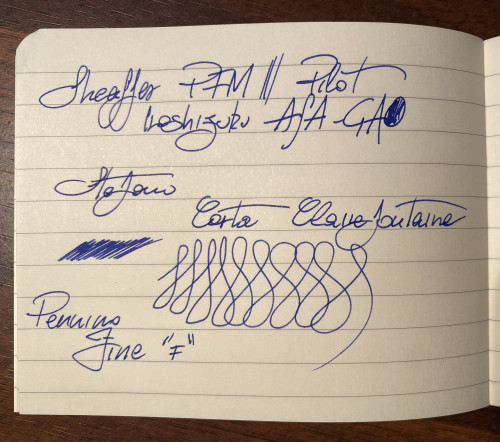 Sheaffer PFM III Pilot
Iroshizuku ASA-GAO
Stefano
Carta Clairefontaine
Pennino
Fine "F"